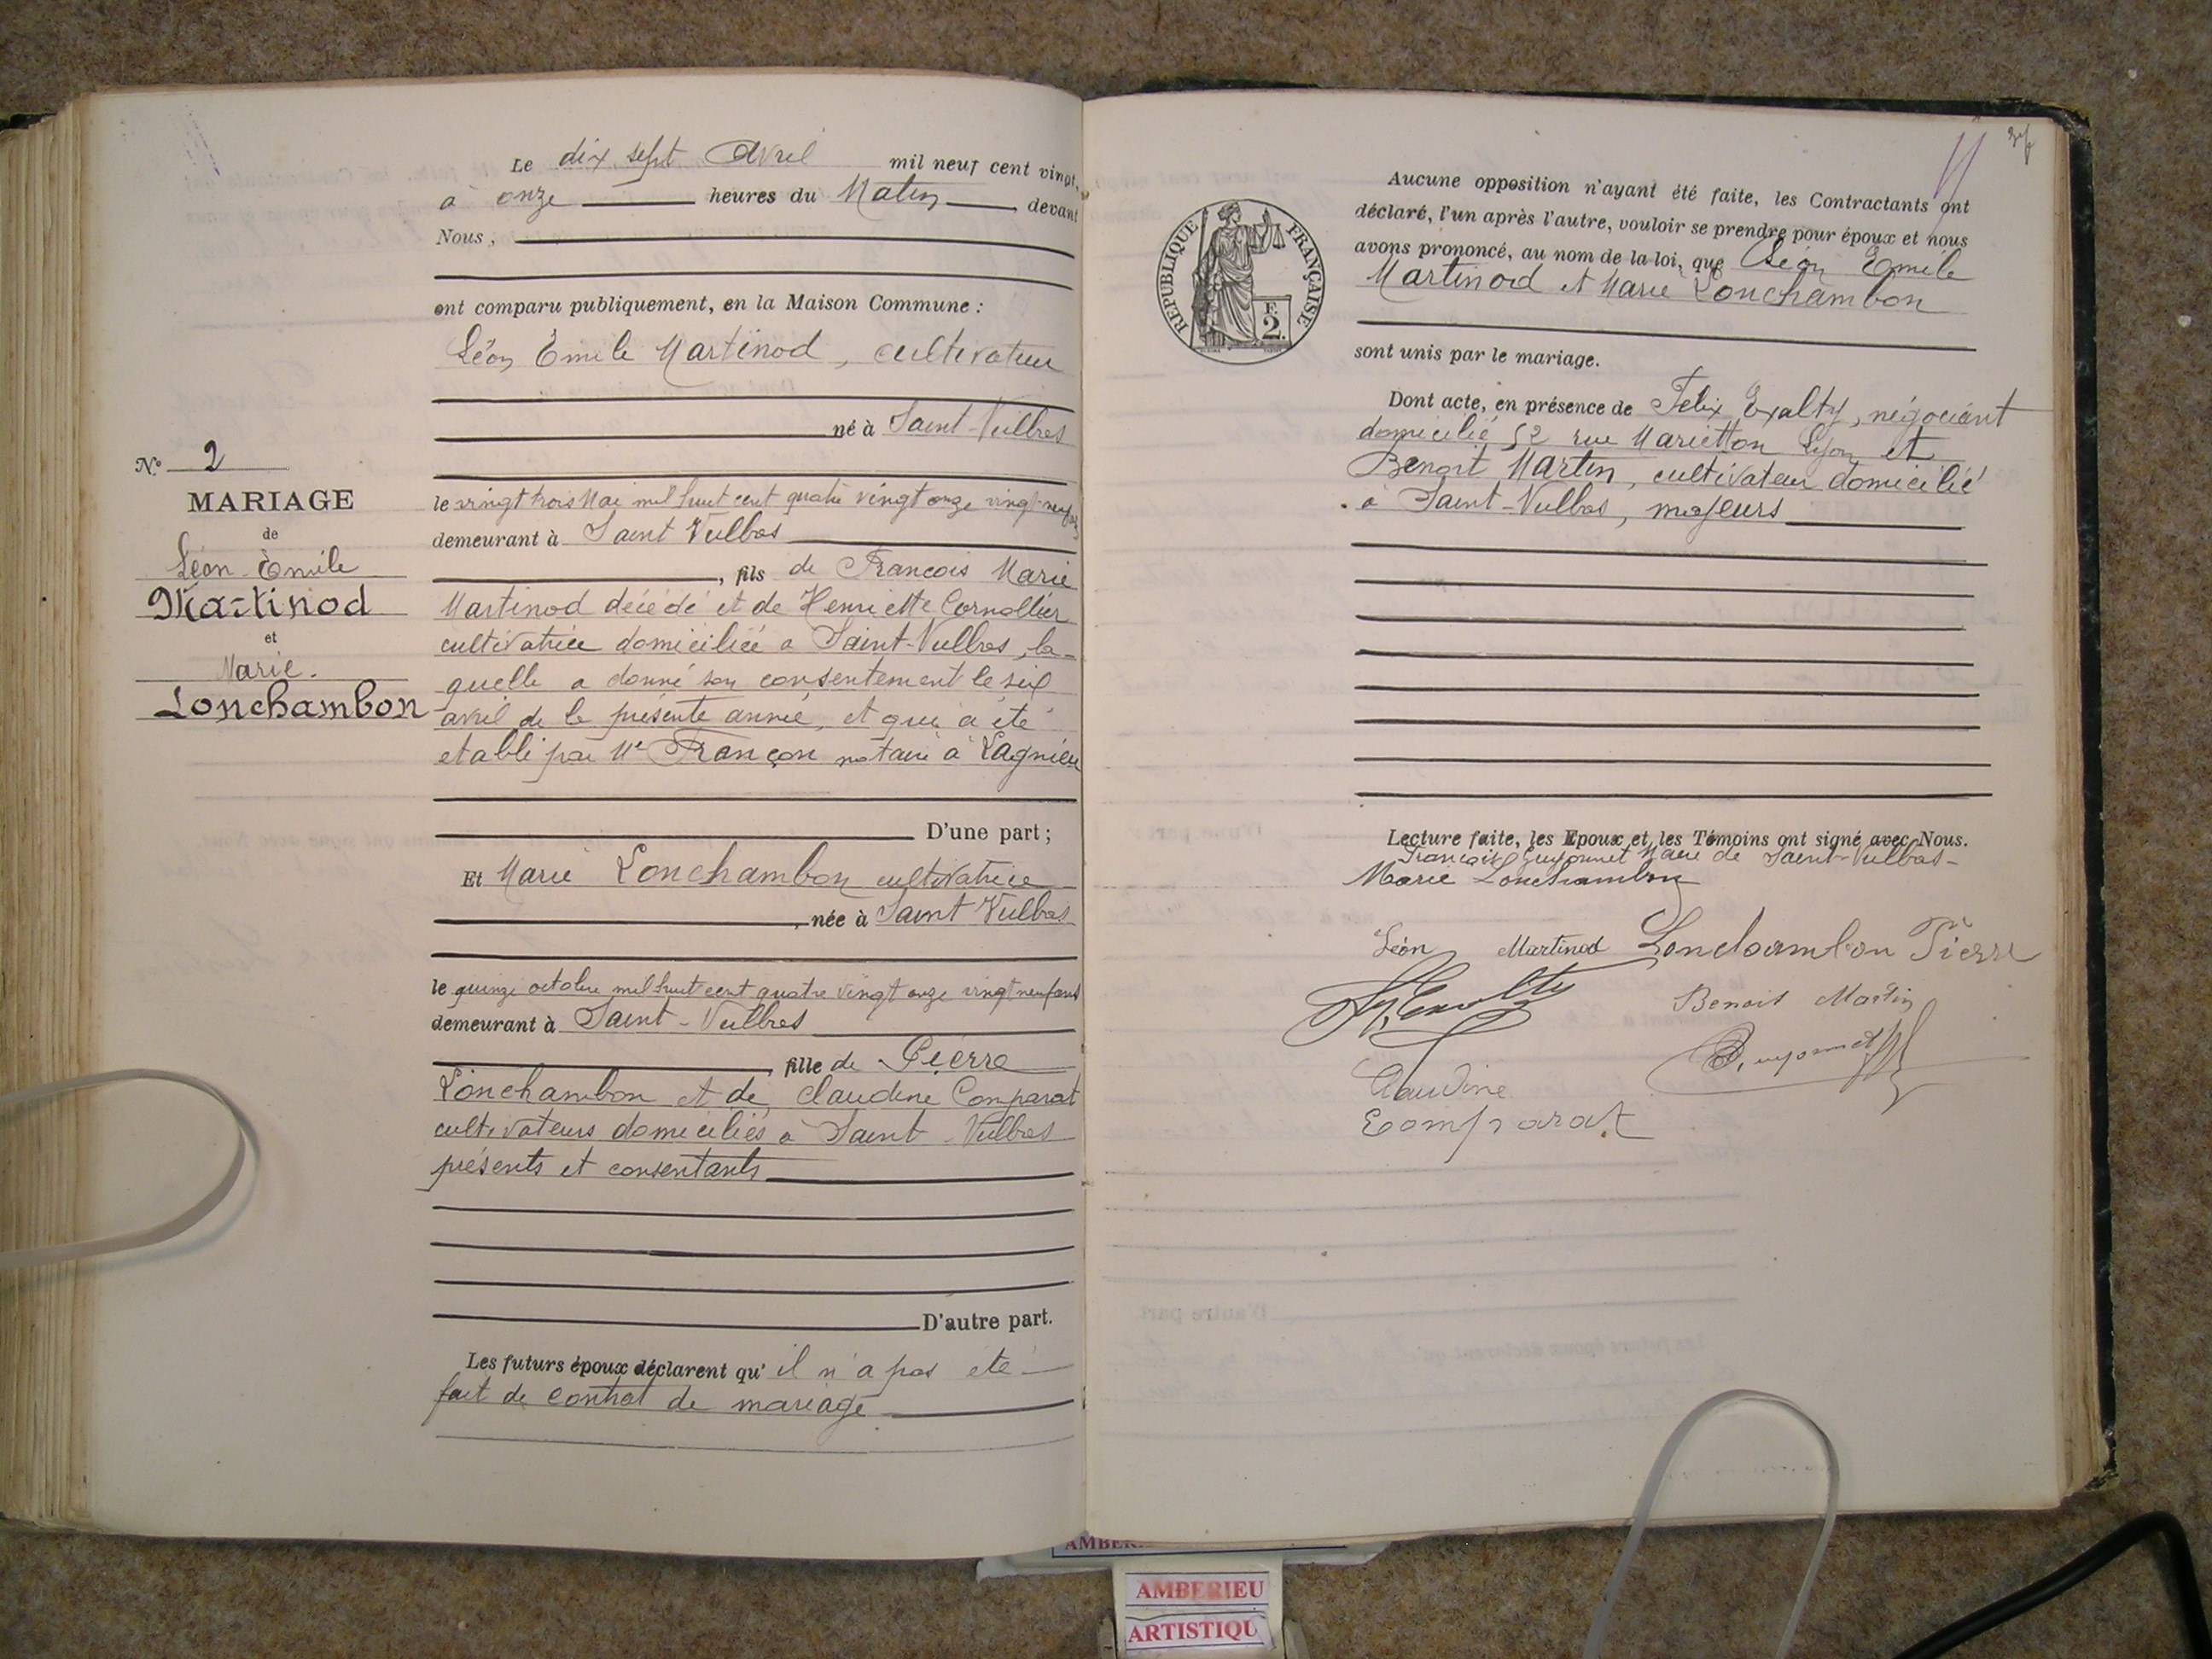 Le dix sept Avril mil neuf cent vingt,
à onze heures du Matin, devant
Nous,
ont comparu publiquement, en la Maison Commune :
Léon Émile Martinod, cultivateur
né à Saint-Vulbas
le vingt trois Mai mil huit cent quatre vingt onze vingt neuf ans
demeurant à Saint Vulbas
, fils de François Marie
Martinod décédé et de Henriette Cornollier
cultivatrice domiciliée a Saint-Vulbas, la-
quelle a donné son consentement le six
avril de la présente année, et qui a été
etabli par Me Françon notaire à Lagnieu
D'une part ;
Et Marie Lonchambon cultivatrice
, née à Saint Vulbas
le quinze octobre mil huit cent quatre vingt onze vingt neuf ans
demeurant à Saint-Vulbas
, fille de Pierre
Lonchambon et de Claudine Comparat
cultivateurs domiciliés a Saint-Vulbas
présents et consentants
D'autre part.
Les futurs époux déclarent qu' il n'a pas été
fait de contrat de mariage
N° 2
MARIAGE
de
Léon-Émile
Martinod
et
Marie.
Lonchambon
RÉPUBLIQUE FRANÇAISE
F.
2.
Aucune opposition n'ayant été faite, les Contractants ont
déclaré, l'un après l'autre, vouloir se prendre pour époux et nous
avons prononcé, au nom de la loi, que Léon Émile
Martinod et Marie Lonchambon
sont unis par le mariage.
Dont acte, en présence de Felix Exalty, négociant
domicilié 52 rue Marietton Lyon et
Benoit Martin, cultivateur domicilié
à Saint-Vulbas, majeurs
Lecture faite, les Epoux et les Témoins ont signé avec Nous.
François Guyonnet Maire de Saint-Vulbas-
Marie Lonchambon
Léon Martinod Lonchambon Pierre
Exalty Benoit Martin
Guyonnet
Claudine
Comparat
AMBERIEU
ARTISTIQU